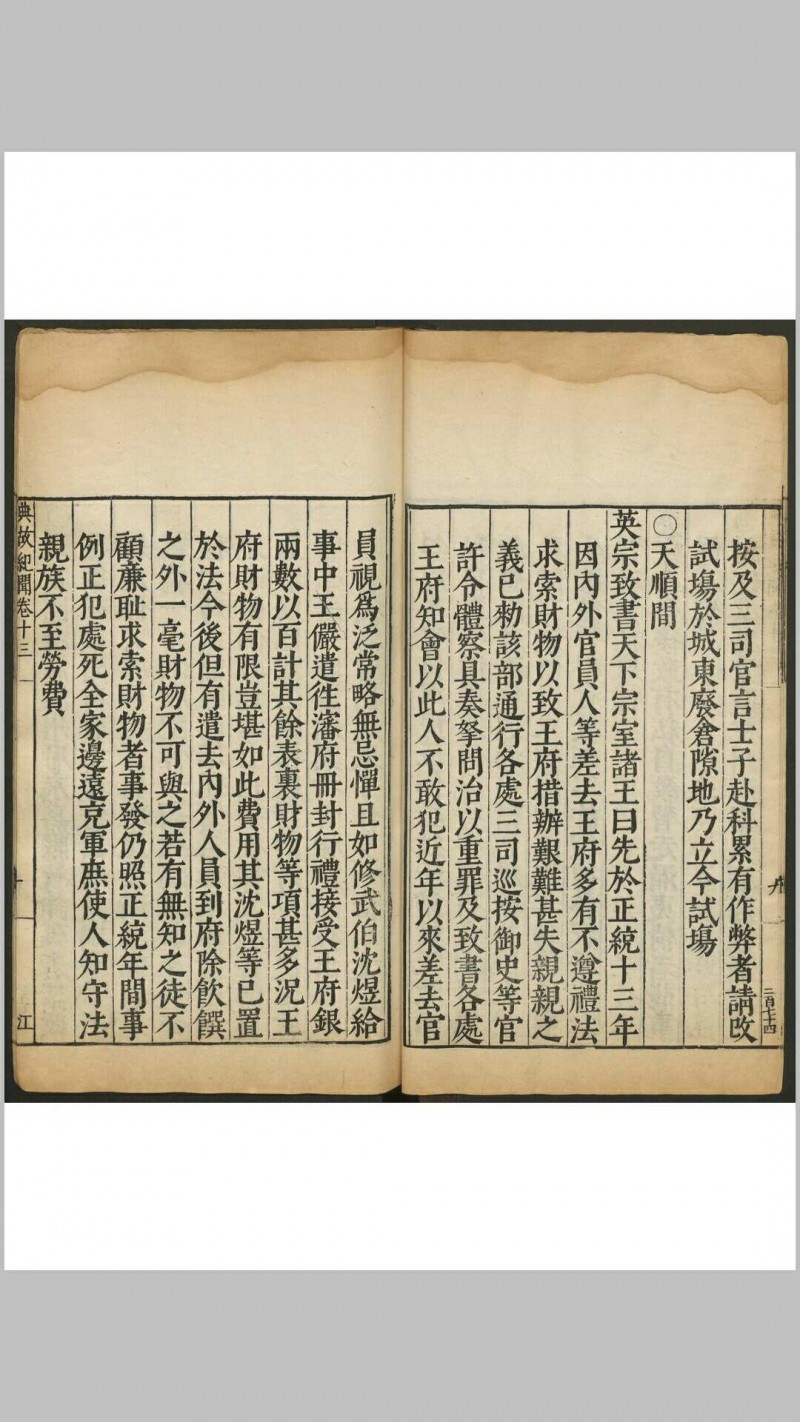 按及三司官言士子赴科累有作弊者請改
試場於城東廢倉隙地乃立今試場
〇天順間
英宗致書天下宗室諸王曰先於正統十三年
因內外官員人等差去王府多有不遵禮法
求索財物以致王府措辦艱難甚失親親之
義已勑該部通行各處三司巡按御史等官
許令體察具奏拏問治以重罪及致書各處
王府知會以此人不敢犯近年以來差去官
員視爲泛常略無忌憚且如修武伯沈煜給
事中王儼遣往瀋府冊封行禮接受王府銀
兩數以百計其餘表裏財物等項甚多況王
府財物有限豈堪如此費用其沈煜等已置
於法今後但有遣去內外人員到府除飲饌
之外一毫財物不可與之若有無知之徒不
顧廉耻求索財物者事發仍照正統年間事
例正犯處死全家邊遠充軍庶使人知守法
親族不至勞費
典故紀聞卷十三
江